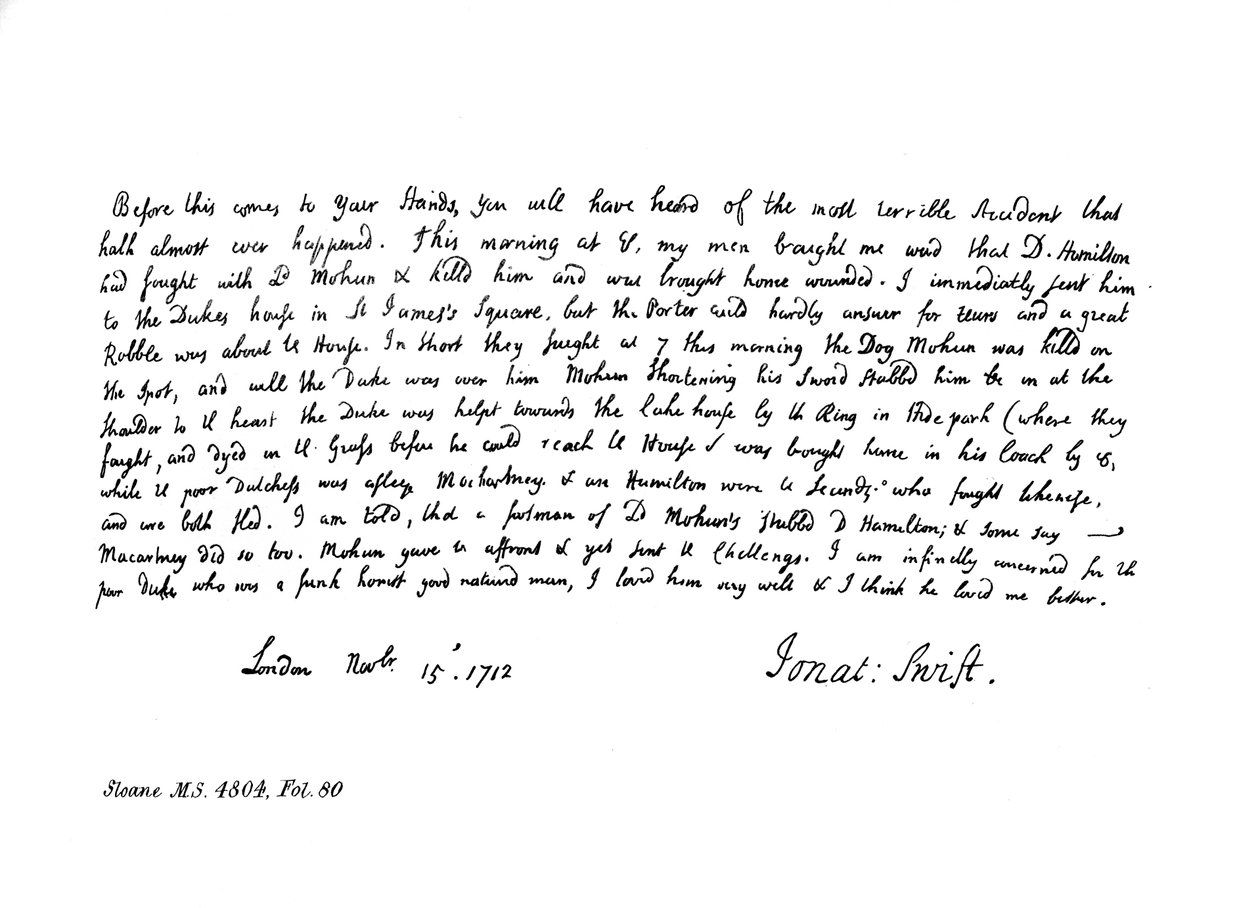 Before this comes to your Hands, you will have heard of the most terrible Accident that
hath almost ever happened. This morning at 8, my man brought me word that D. Hamilton
had fought with Ld Mohun & killd him and was brought home wounded. I immediatly sent him
to the Dukes house in St James's Square, but the Porter could hardly answer for tears and a great
Rabble was about the House. In short they fought at 7 this morning the Dog Mohun was killd on
the spot, and while the Duke was over him Mohun shortening his Sword stabbd him in at the
shoulder to the heart the Duke was helpt towards the lake house by the Ring in Hide park (where they
fought, and dyed on the Grass before he could reach the House & was brought home in his Coach by 8,
while the poor Dutchess was asleep Mackartney. & one Hamilton were the Seconds who fought likewise,
and are both fled. I am told, that a footman of Ld Mohun's stabbd D Hamilton; & some say
Macartney did so too. Mohun gave the affront & yet sent the Challenge. I am infinitly concerned for the
poor Duke who was a frank honest good naturd man, I lovd him very well & I think he lovd me better.
London Novbr. 15. 1712
Jonat: Swift.
Sloane M.S. 4804, Fol. 80